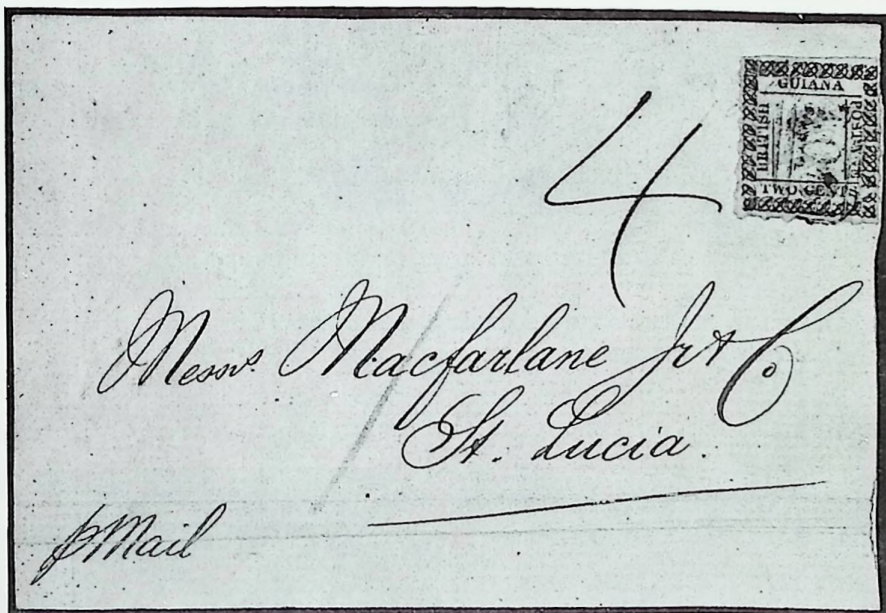 GUIANA
BRITISH
POSTAGE
TWO CENTS
4
Messrs. Macfarlane Jr & Co
St. Lucia.
p Mail